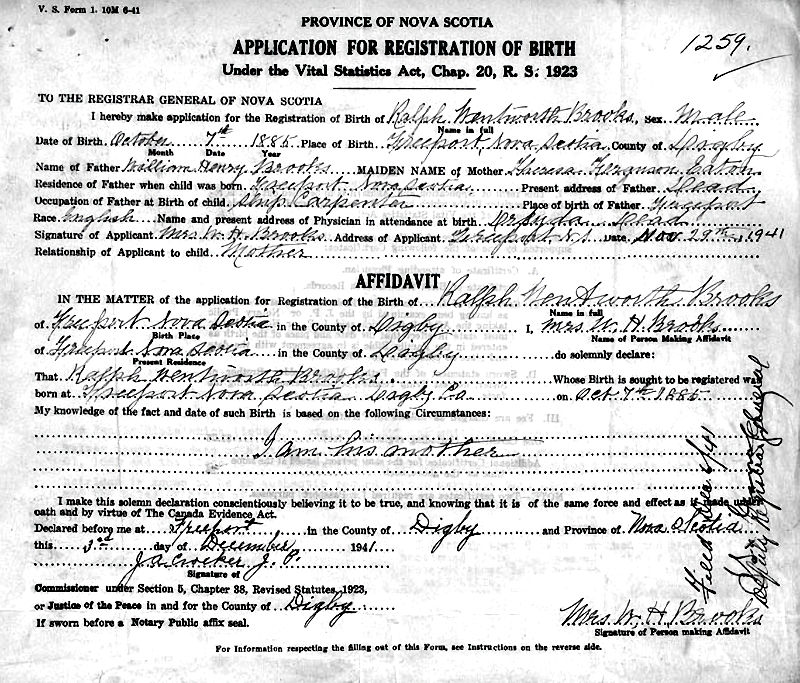 V. S. Form 1. 10M 6-41
PROVINCE OF NOVA SCOTIA
APPLICATION FOR REGISTRATION OF BIRTH
1259.
Under the Vital Statistics Act, Chap. 20, R. S. 1923
TO THE REGISTRAR GENERAL OF NOVA SCOTIA
I hereby make application for the Registration of Birth of Ralph Wentworth Brooks, Sex Male
Name in full
Date of Birth October 7th 1885 Place of Birth Freeport, Nova Scotia County of Digby
Month Date Year
Name of Father William Henry Brooks MAIDEN NAME of Mother Theresa Ferguson Eaton
Residence of Father when child was born Freeport Nova Scotia Present address of Father Dead
Occupation of Father at Birth of child Ship Carpenter Place of birth of Father Freeport
Race English Name and present address of Physician in attendance at birth Dead
Signature of Applicant Mrs W. H. Brooks Address of Applicant Freeport, N.S Date Nov. 29th, 1941
Relationship of Applicant to child Mother
AFFIDAVIT
IN THE MATTER of the application for Registration of the Birth of Ralph Wentworth Brooks
Name in full
of Freeport Nova Scotia in the County of Digby I, Mrs. W. H. Brooks
Birth Place Name of Person Making Affidavit
of Freeport Nova Scotia in the County of Digby do solemnly declare:
Present Residence
That Ralph Wentworth Brooks Whose Birth is sought to be registered was
born at Freeport Nova Scotia Digby Co on Oct 7th 1885
My knowledge of the fact and date of such Birth is based on the following Circumstances:
I am his mother
I make this solemn declaration conscientiously believing it to be true, and knowing that it is of the same force and effect as if made under
oath and by virtue of The Canada Evidence Act.
Declared before me at Freeport in the County of Digby and Province of Nova Scotia
this 3rd day of December 1941
J. A. Crocker J. P.
Signature of
Commissioner under Section 5, Chapter 38, Revised Statutes, 1923,
or Justice of the Peace in and for the County of Digby
If sworn before a Notary Public affix seal.
Mrs. W. H. Brooks
Signature of Person making Affidavit
For Information respecting the filling out of this Form, see Instructions on the reverse side.
Filed Dec 6/41
Deputy Registrar General